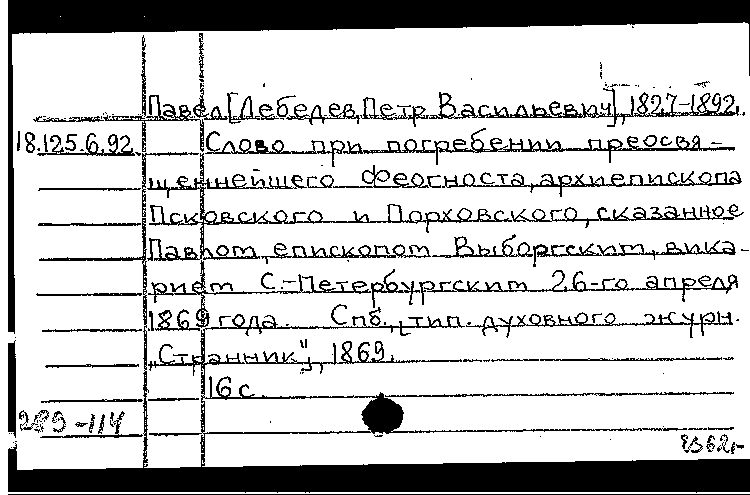 Павел[Лебедев, Петр Васильевич], 1827-1892.
18.125.6.92 Слово при погребении преосвя-
щеннейшего Феогноста, архиепископа
Псковского и Порховского, сказанное
Павлом, епископом Выборгским, вика-
рием С.-Петербургским 26-го апреля
1869 года. Спб., тип. духовного журн.
„Странник", 1869.
16 с.
289-114